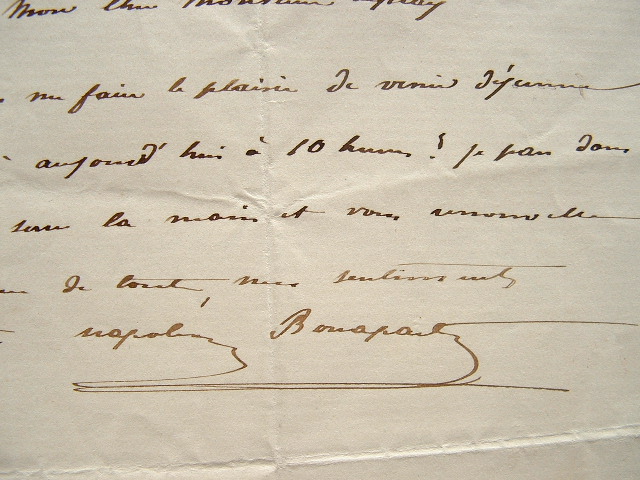 Mon cher Monsieur
me faire le plaisir de venir déjeuner
aujourd'hui à 10 heures? je pars dans
serre la main et vous renouvelle
de tout mes sentiments
napoléon Bonaparte